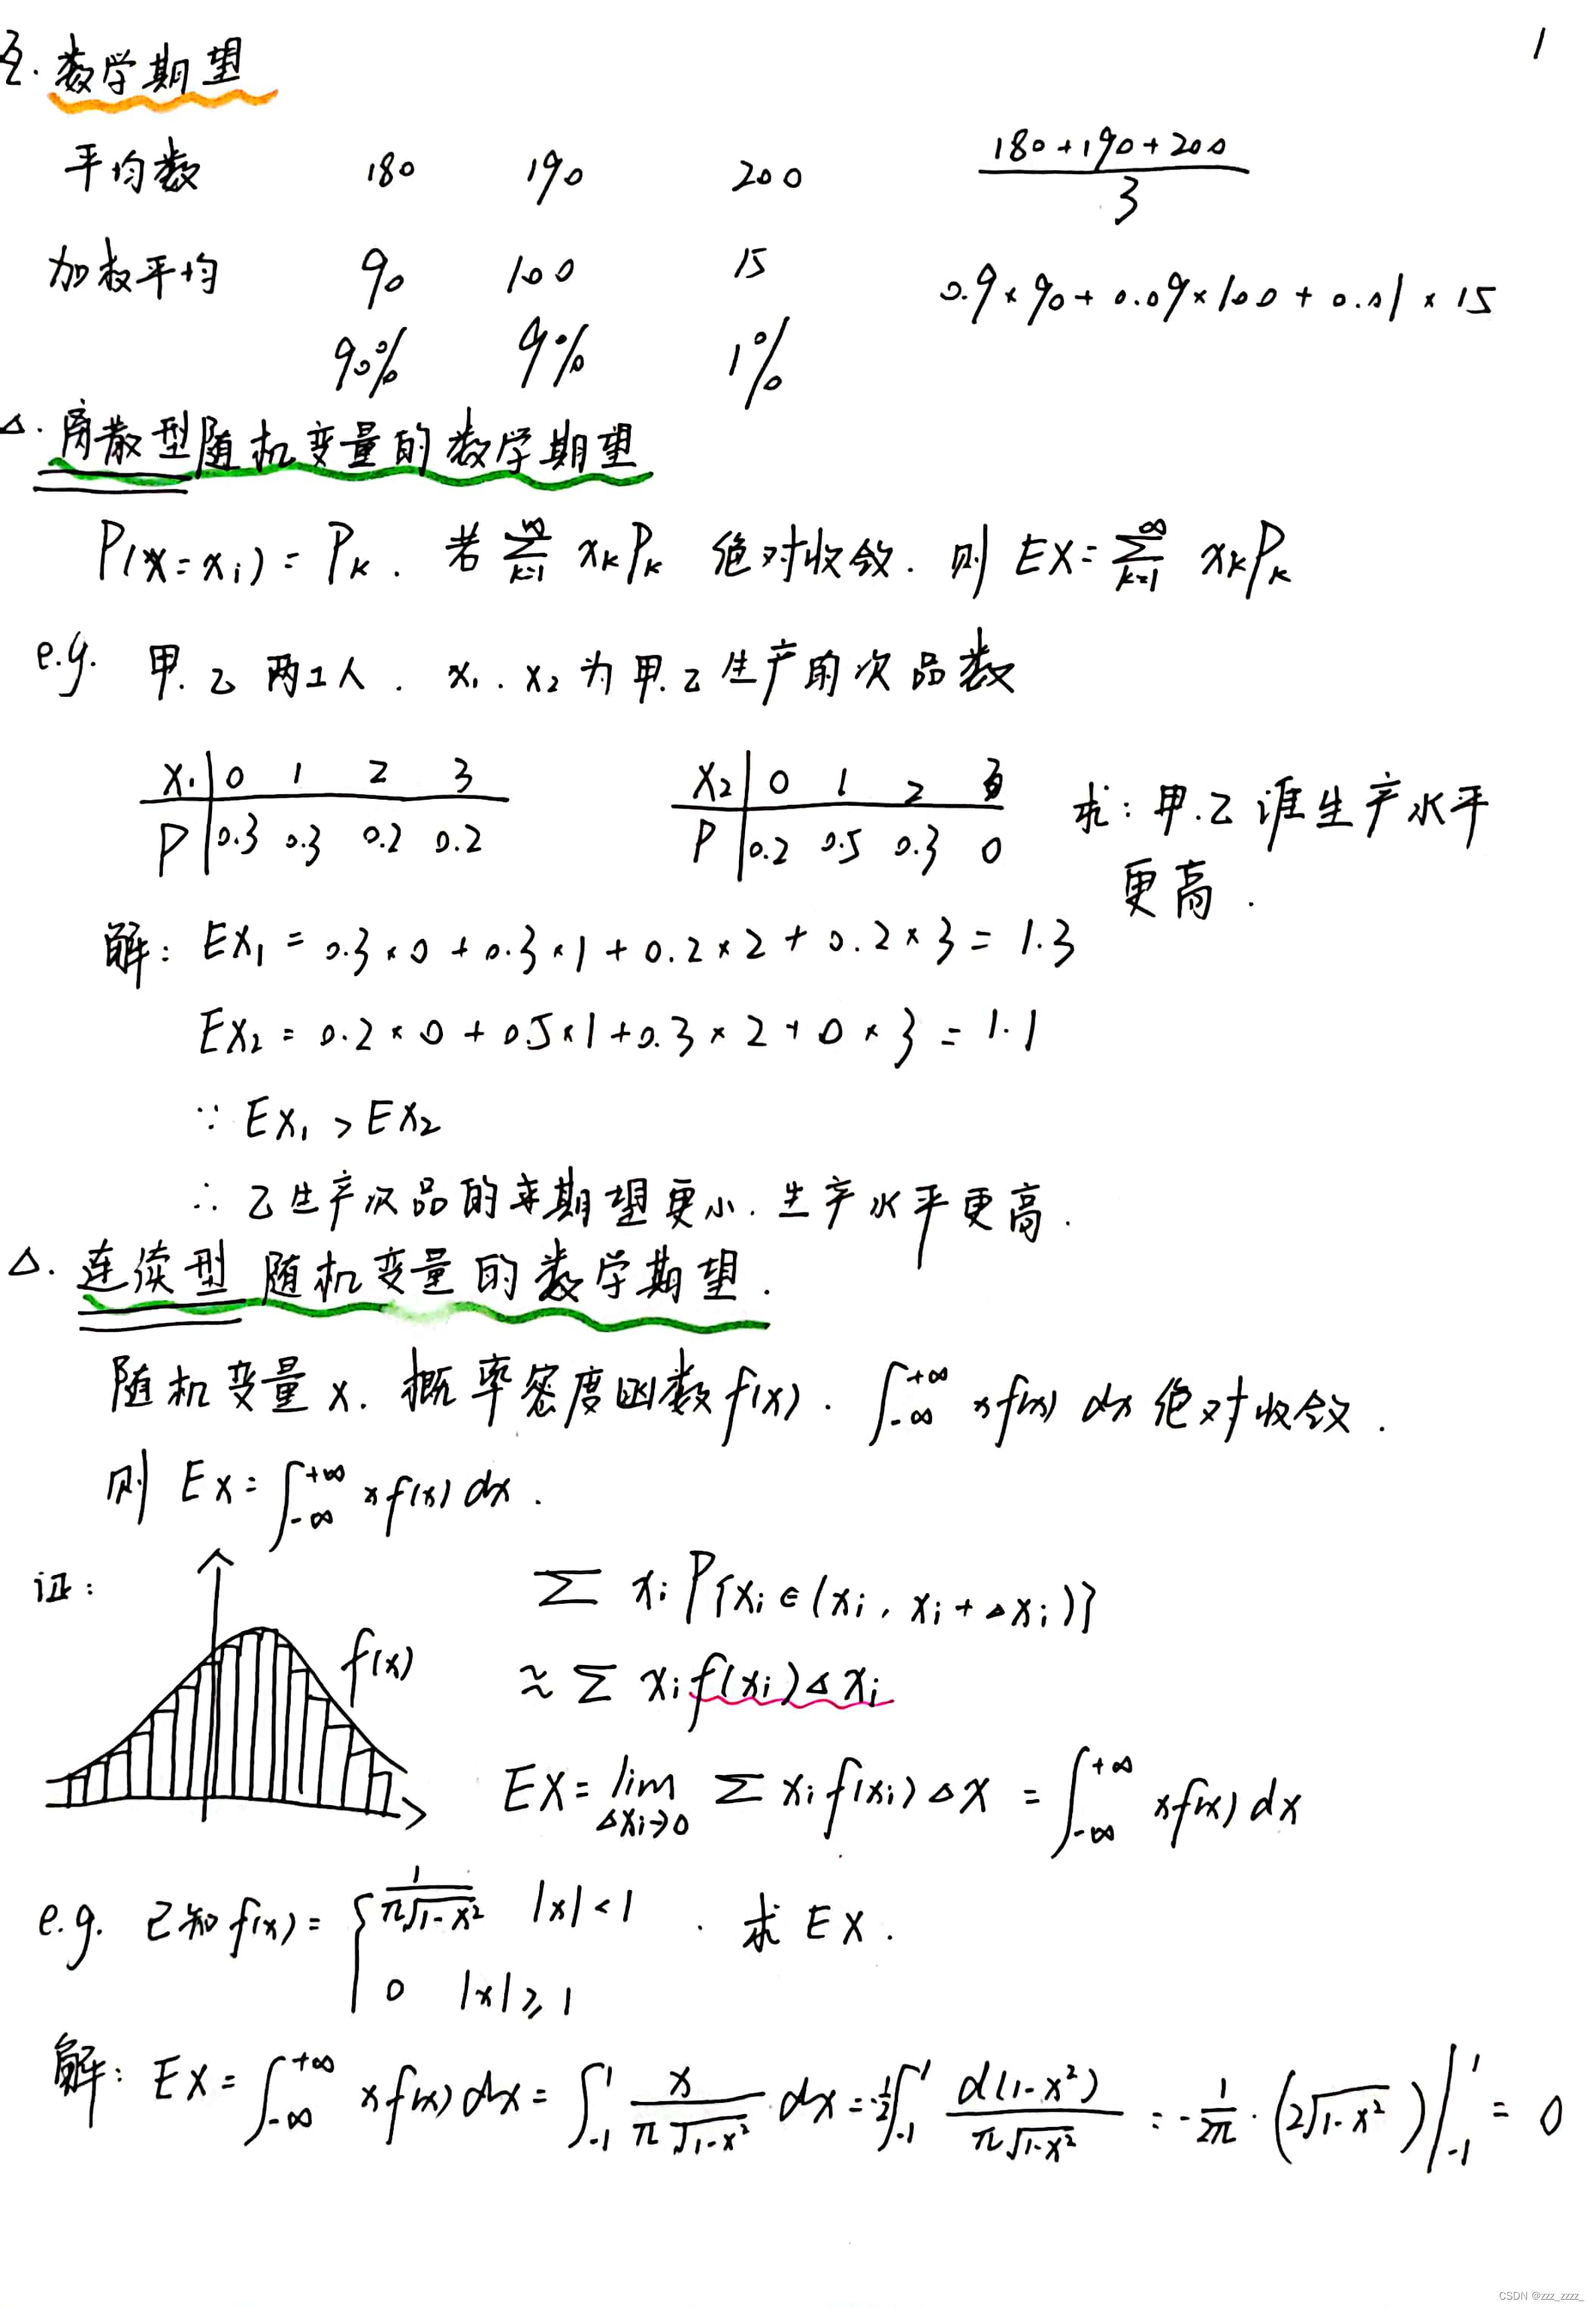 1
数学期望
平均数 180 190 200 (180+190+200)/3
加权平均 90 100 15 0.9×90+0.09×100+0.01×15
90% 9% 1%
△. 离散型随机变量的数学期望
P(X=xi)=Pk. 若 ∑_{k=1}^{∞} xkPk 绝对收敛. 则 EX=∑_{k=1}^{∞} xkPk
e.g. 甲.乙两工人. x₁. x₂为甲.乙生产的次品数
X₁ 0 1 2 3 X₂ 0 1 2 3 求:甲.乙谁生产水平
P 0.3 0.3 0.2 0.2 P 0.2 0.5 0.3 0
更高.
解: EX₁ = 0.3×0+0.3×1+0.2×2+0.2×3=1.3
EX₂=0.2×0+0.5×1+0.3×2+0×3=1.1
∵ EX₁>EX₂
∴ 乙生产次品的期望更小. 生产水平更高.
△. 连续型随机变量的数学期望.
随机变量x. 概率密度函数f(x). ∫_{-∞}^{+∞} xf(x)dx绝对收敛.
则 EX=∫_{-∞}^{+∞} xf(x)dx.
证:
f(x)
∑ xi P{xi∈(xi, xi+△xi)}
≈∑ xi f(xi)△xi
EX=lim_{△xi→0} ∑ xi f(xi)△x = ∫_{-∞}^{+∞} xf(x)dx
e.g. 已知f(x)={ 1/(π√(1-x²)) |x|<1 . 求EX.
0 |x|≥1
解: EX=∫_{-∞}^{+∞} xf(x)dx=∫_{-1}^{1} x/(π√(1-x²)) dx=-½∫_{-1}^{1} d(1-x²)/(π√(1-x²)) =-1/(2π)·(2√(1-x²))|_{-1}^{1} = 0
CSDN @zzz_zzzz_